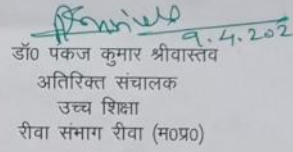 9.4.202
डॉ0 पंकज कुमार श्रीवास्तव
अतिरिक्त संचालक
उच्च शिक्षा
रीवा संभाग रीवा (म0प्र0)